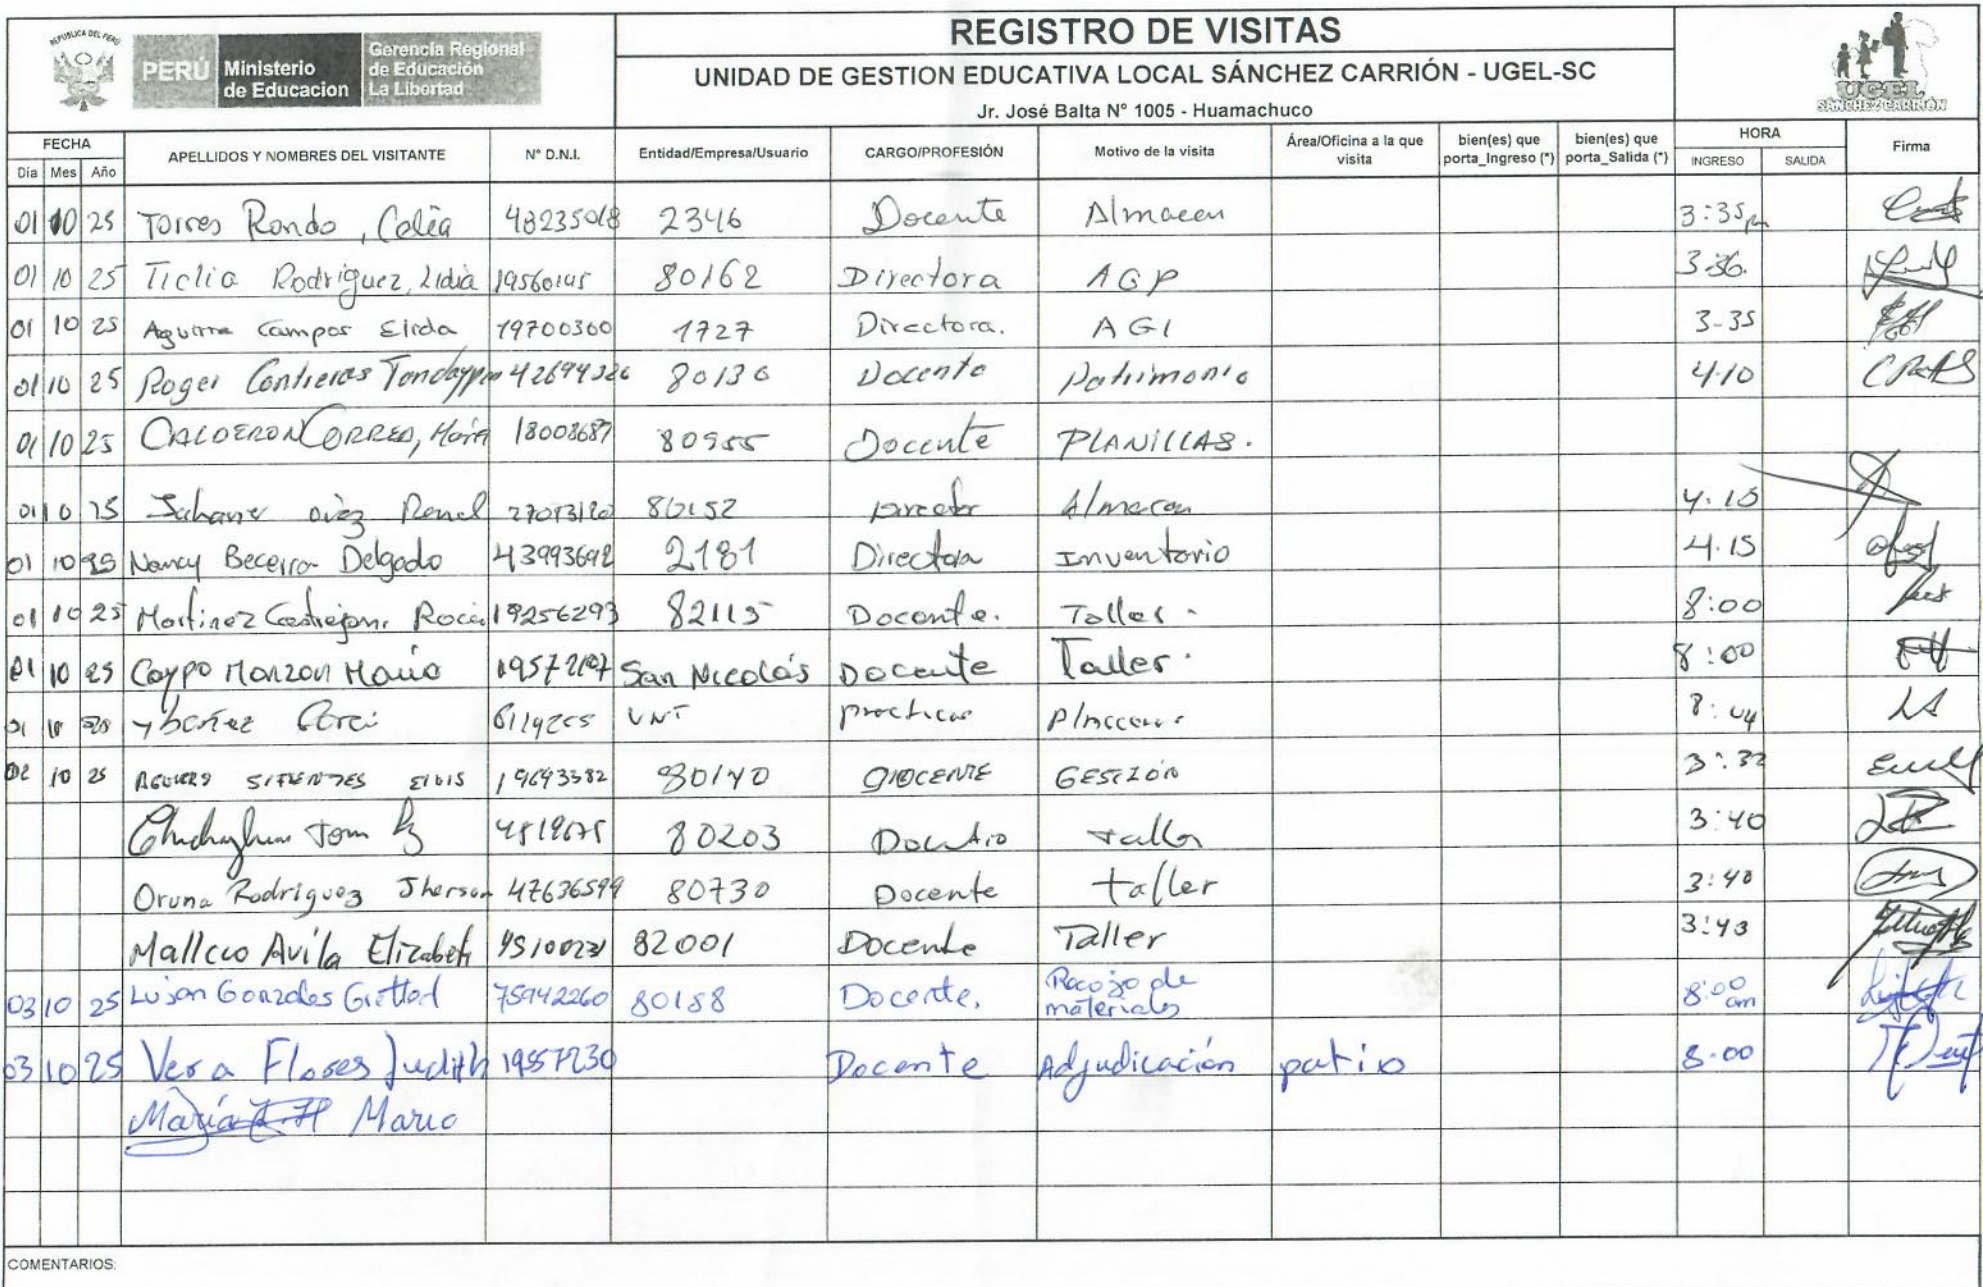 REPUBLICA DEL PERÚ
PERÚ Ministerio de Educacion Gerencia Regional de Educación La Libertad
REGISTRO DE VISITAS
UNIDAD DE GESTION EDUCATIVA LOCAL SÁNCHEZ CARRIÓN - UGEL-SC
Jr. José Balta N° 1005 - Huamachuco
UGEL
SÁNCHEZ CARRIÓN
FECHA APELLIDOS Y NOMBRES DEL VISITANTE N° D.N.I. Entidad/Empresa/Usuario CARGO/PROFESIÓN Motivo de la visita Área/Oficina a la que visita bien(es) que porta_Ingreso (*) bien(es) que porta_Salida (*) HORA Firma
Día Mes Año INGRESO SALIDA
01 10 25 Torres Rondo, Celia 2346 Docente Almacen 3:35 pm
01 10 25 Ticlia Rodriguez, Lidia 19560145 80162 Directora AGP 3-36.
01 10 25 Aguirre Campos Elida 19700360 1727 Directora. AGI 3-35
01 10 25 Roger Contreras 42694326 80130 Docente Patrimonio 4.10
01 10 25 CALDERON CORREA, 80955 Docente PLANILLAS.
01 10 25 80152 Almacen 4.15
01 10 25 Nancy Becerra Delgado 43993692 2181 Directora Inventorio 4.15
01 10 25 Martinez Castrejon, Rocio 19256293 82115 Docente. Taller. 8:00
01 10 25 Caypo Monzon Maria San Nicolás Docente Taller. 8:00
01 10 UNT practicas 8:04
02 10 25 SIFUENTES ELVIS 19693382 80140 DOCENTE GESTIÓN 3:32
80203 taller 3:40
Oruna Rodriguez Jherson 47636599 80730 Docente taller 3:40
Mallcco Avila Elizabeth 82001 Docente Taller 3:43
03 10 25 Lujan Gonzales 75942260 80158 Docente. Recojo de materiales 8:00 am
03 10 25 Vera Flores Judith 19857230 Docente Adjudicación patio 8.00
María Maria
COMENTARIOS: